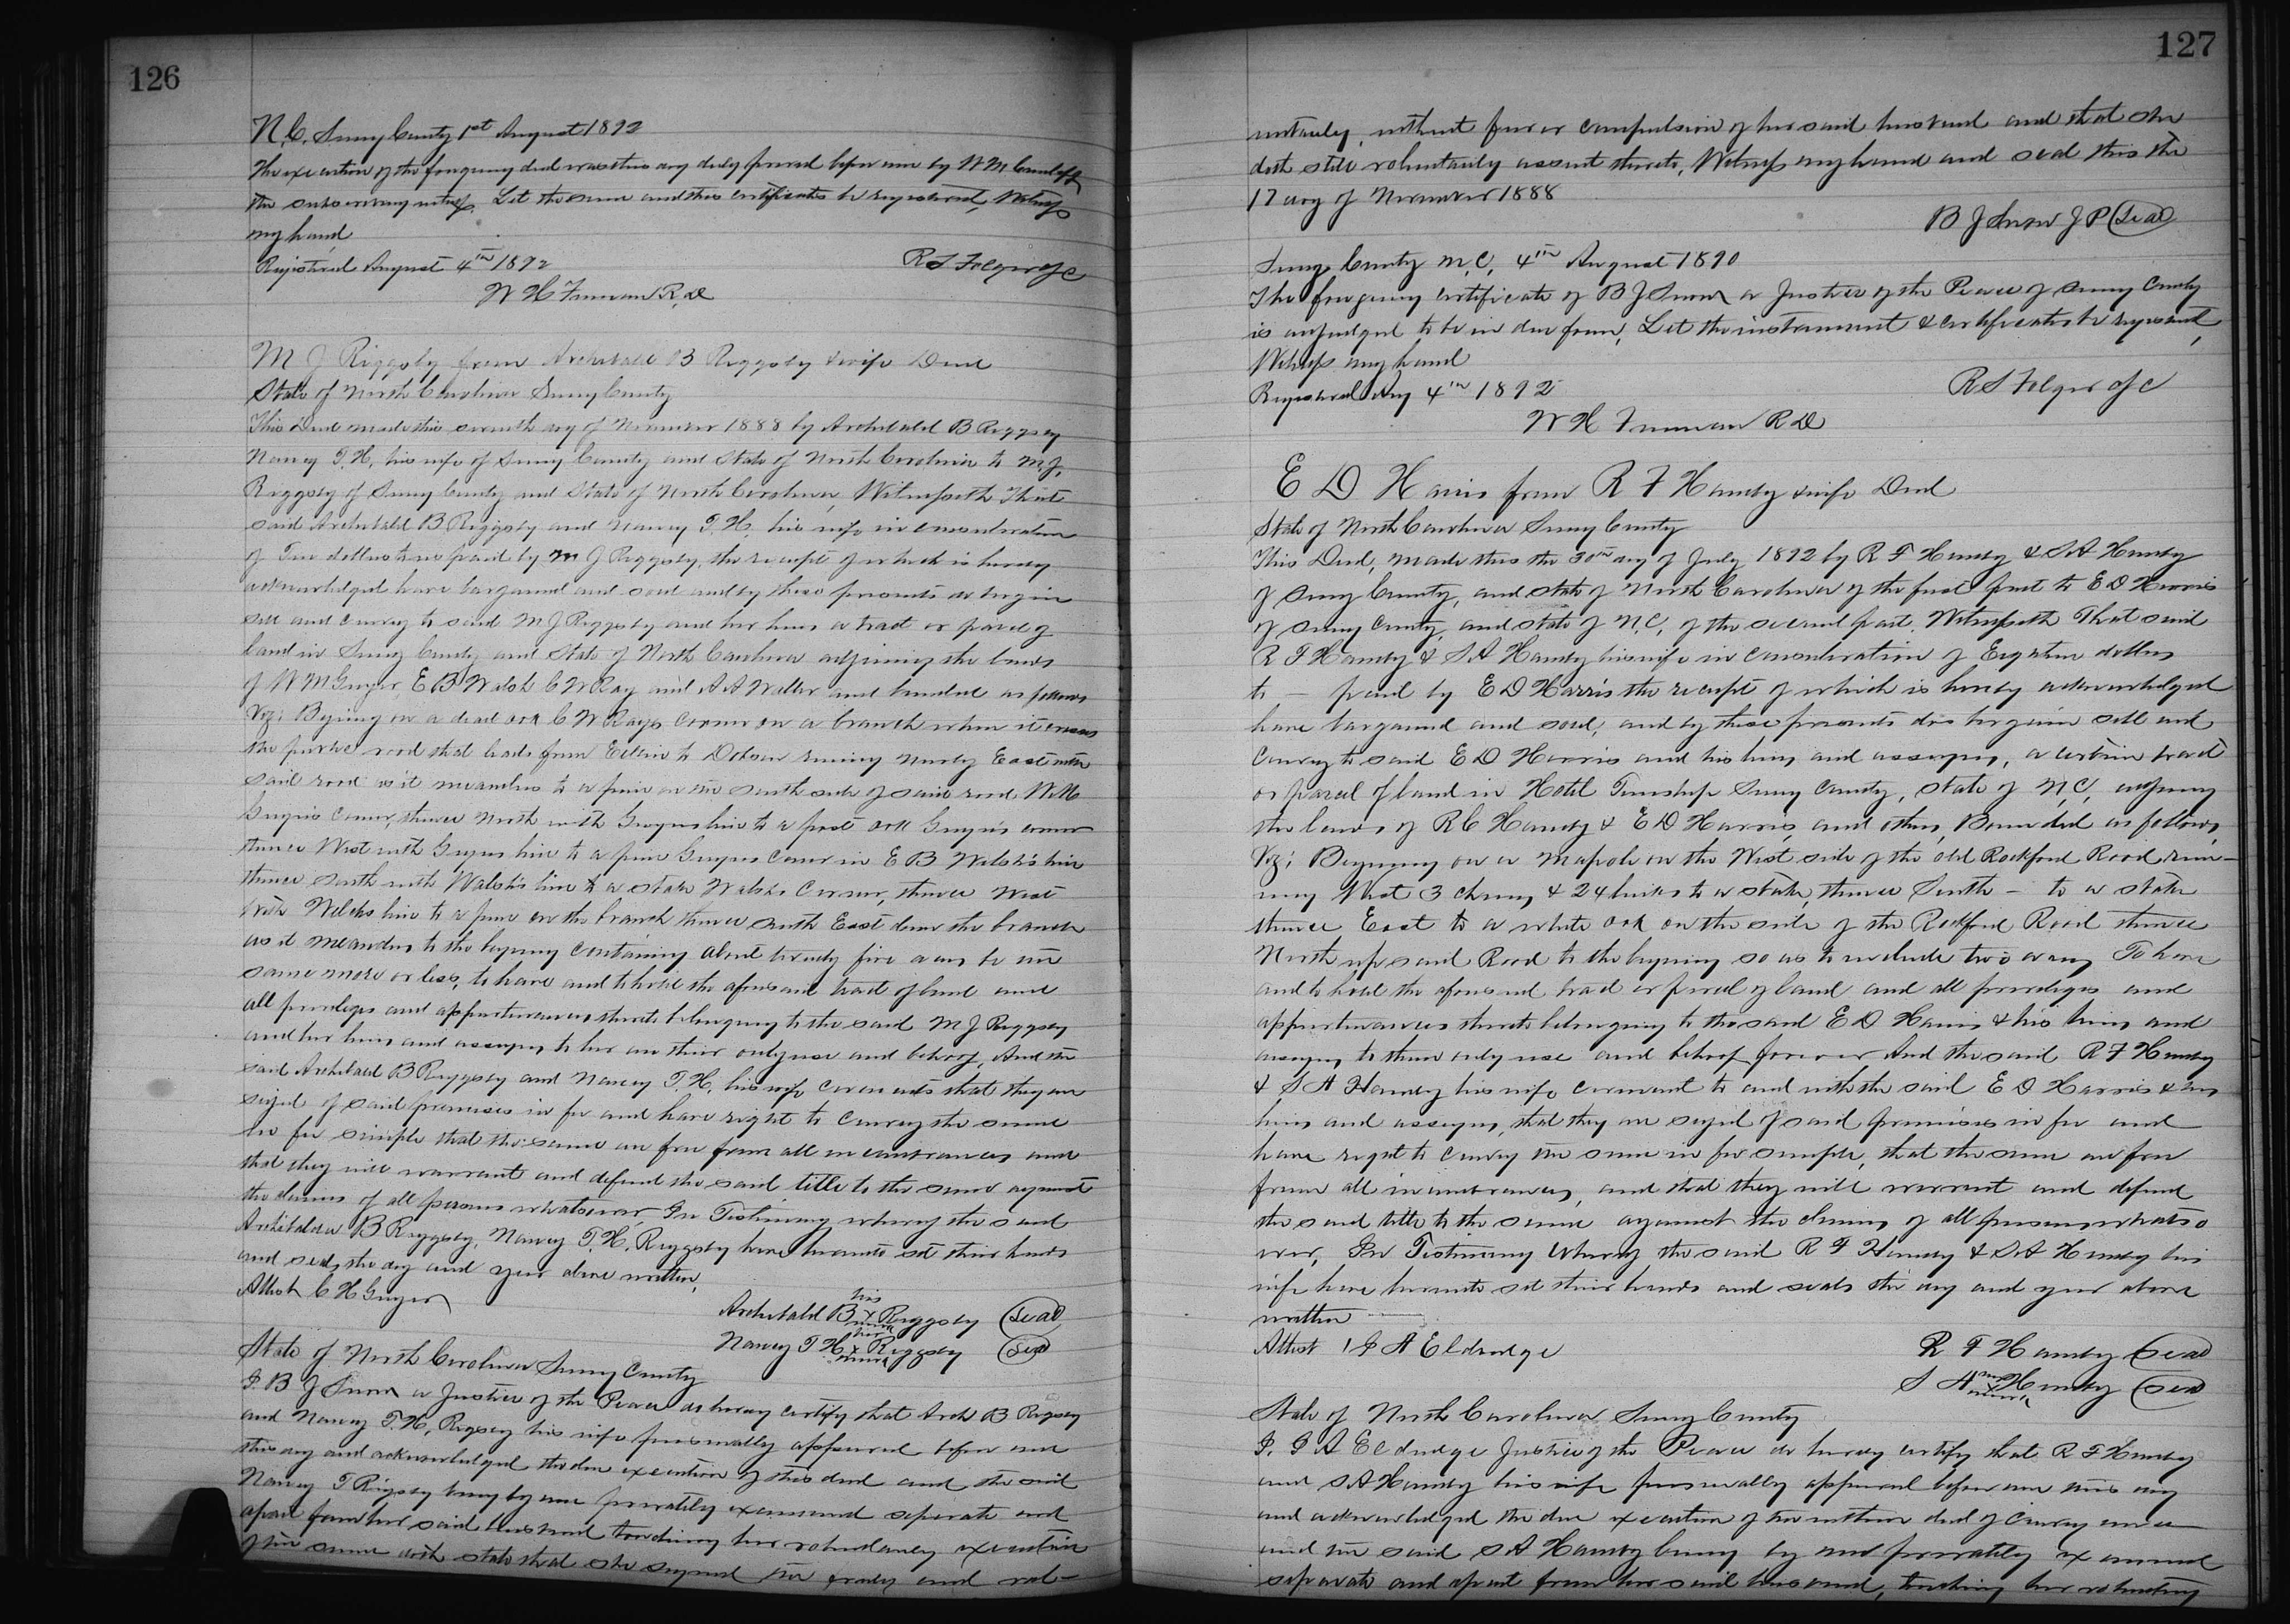 126
N.C. Surry County 1st August 1892
The execution of the foregoing deed was this day duly proved before me by W M
the subscribing witness. Let the same and this certificate be registered, Witness
my hand
R S Folger CSC
Registered August 4th 1892
W H Freeman R.D
M J Riggsby from Archibald B Riggsby & wife Deed
State of North Carolina Surry County
This Deed made this seventh day of November 1888 by Archibald B Riggsby
Nancy T. H. his wife of Surry County and State of North Carolina to M.J.
Riggsby of Surry County and State of North Carolina, Witnesseth That
said Archibald B Riggsby and Nancy T. H. his wife in consideration
of Ten dollars to us paid by M J Riggsby, the receipt of which is hereby
acknowledged have bargained and sold and by these presents do bargain
sell and convey to said M J Riggsby and her heirs a tract or parcel of
land in Surry County and State of North Carolina adjoining the lands
of W M Gwyn, E B Walsh C W Ray and A A Waller and bounded as follows
Viz: Begining on a dead oak C W Rays Corner on a branch when it crosses
the public road that leads from Elkin to Dobson runing North East with
said road as it meanders to a pine on the south side of said road W M
Gwyns Corner, thence North with Gwyns line to a post oak Gwyn's corner
thence West with Gwyns line to a pine Gwyns Corner in E B Walsh's line
thence south with Walsh's line to a stake Walshs Corner, thence West
with Welchs line to a pine on the branch thence south East down the branch
as it meanders to the begining containing about twenty five acres be the
same more or less, to have and to hold the aforesaid tract of land and
all privileges and appurtenances thereto belonging to the said M J Riggsby
and her heirs and assigns to her and their only use and behoof, And the
said Archibald B Riggsby and Nancy T. H. his wife covenants that they are
seized of said premises in fee and have right to convey the same
in fee simple that the same are free from all incumbrances and
that they will warrant and defend the said title to the same against
the claims of all persons whatsoever In Testimony whereof the said
Archibald B Riggsby, Nancy T. H. Riggsby have hereunto set their hands
and seals the day and year above written,
Attest C H Gwyn
Archibald B his x mark Riggsby (Seal)
Nancy T H her x mark Riggsby (Seal)
State of North Carolina Surry County
I. B J Snow a Justice of the Peace do hereby certify that Arch B Rigsby
and Nancy T. H. Rigsby his wife personally appeared before me
this day and acknowledged the due execution of this deed and the said
Nancy T Rigsby being by me privately examined separate and
apart from her said husband touching her voluntary execution
of the same doth state that she signed the freely and vol-
127
untarily, without fear or compulsion of her said husband and that she
doth still voluntarily assent thereto, Witness my hand and seal this the
17 day of November 1888
B J Snow J P (Seal)
Surry County N.C. 4th August 1890
The foregoing certificate of B J Snow a Justice of the Peace of Surry County
is adjudged to be in due form, Let the instrument & certificates be registered,
Witness my hand
R S Folger CSC
Registered Aug 4th 1892
W H Freeman R D
E D Harris from R F Hamby & wife Deed
State of North Carolina Surry County
This Deed, made this the 30th day of July 1892 by R F Hamby & S A Hamby
of Surry County, and state of North Carolina of the first part to E D Harris
of Surry County, and state of N.C. of the second part. Witnesseth That said
R F Hamby & S A Hamby his wife in consideration of Eighteen dollars
to — paid by E D Harris the receipt of which is hereby acknowledged
have bargained and sold, and by these presents dos bargain sell and
convey to said E D Harris and his heirs and assigns, a certain tract
or parcel of land in Hotel Township Surry County, State of N.C. adjoining
the lands of R C Hamby & E D Harris and others, Bounded as follows,
Viz: Begining on a Mapole on the West side of the old Rockford Road run-
ning West 3 chains & 24 links to a stake, thence South — to a stake
thence East to a white oak on the side of the Rockford Road thence
North up said Road to the begining so as to include two acres To have
and to hold the aforesaid tract or parcel of land and all privileges and
appurtenances thereto belonging to the said E D Harris & his heirs and
assigns to them only use and behoof forever And the said R F Hamby
& S A Hamby his wife covenant to and with the said E D Harris & his
heirs and assigns, that they are seized of said premises in fee and
have right to convey the same in fee simple, that the same are free
from all incumbrances, and that they will warrant and defend
the said title to the same against the claims of all persons whatso
ever, In Testimony Whereof the said R F Hamby & S A Hamby his
wife have hereunto set their hands and seals the day and year above
written
Attest I A Eldridge
R F Hamby (Seal)
S A x mark Hamby (Seal)
State of North Carolina Surry County
I. I A Eldridge Justice of the Peace do hereby certify that R F Hamby
and S A Hamby his wife personally appeared before me this day
and acknowledged the due execution of the within deed of conveyance
and the said S A Hamby being by me privately examined
separate and apart from her said husband, touching her voluntary